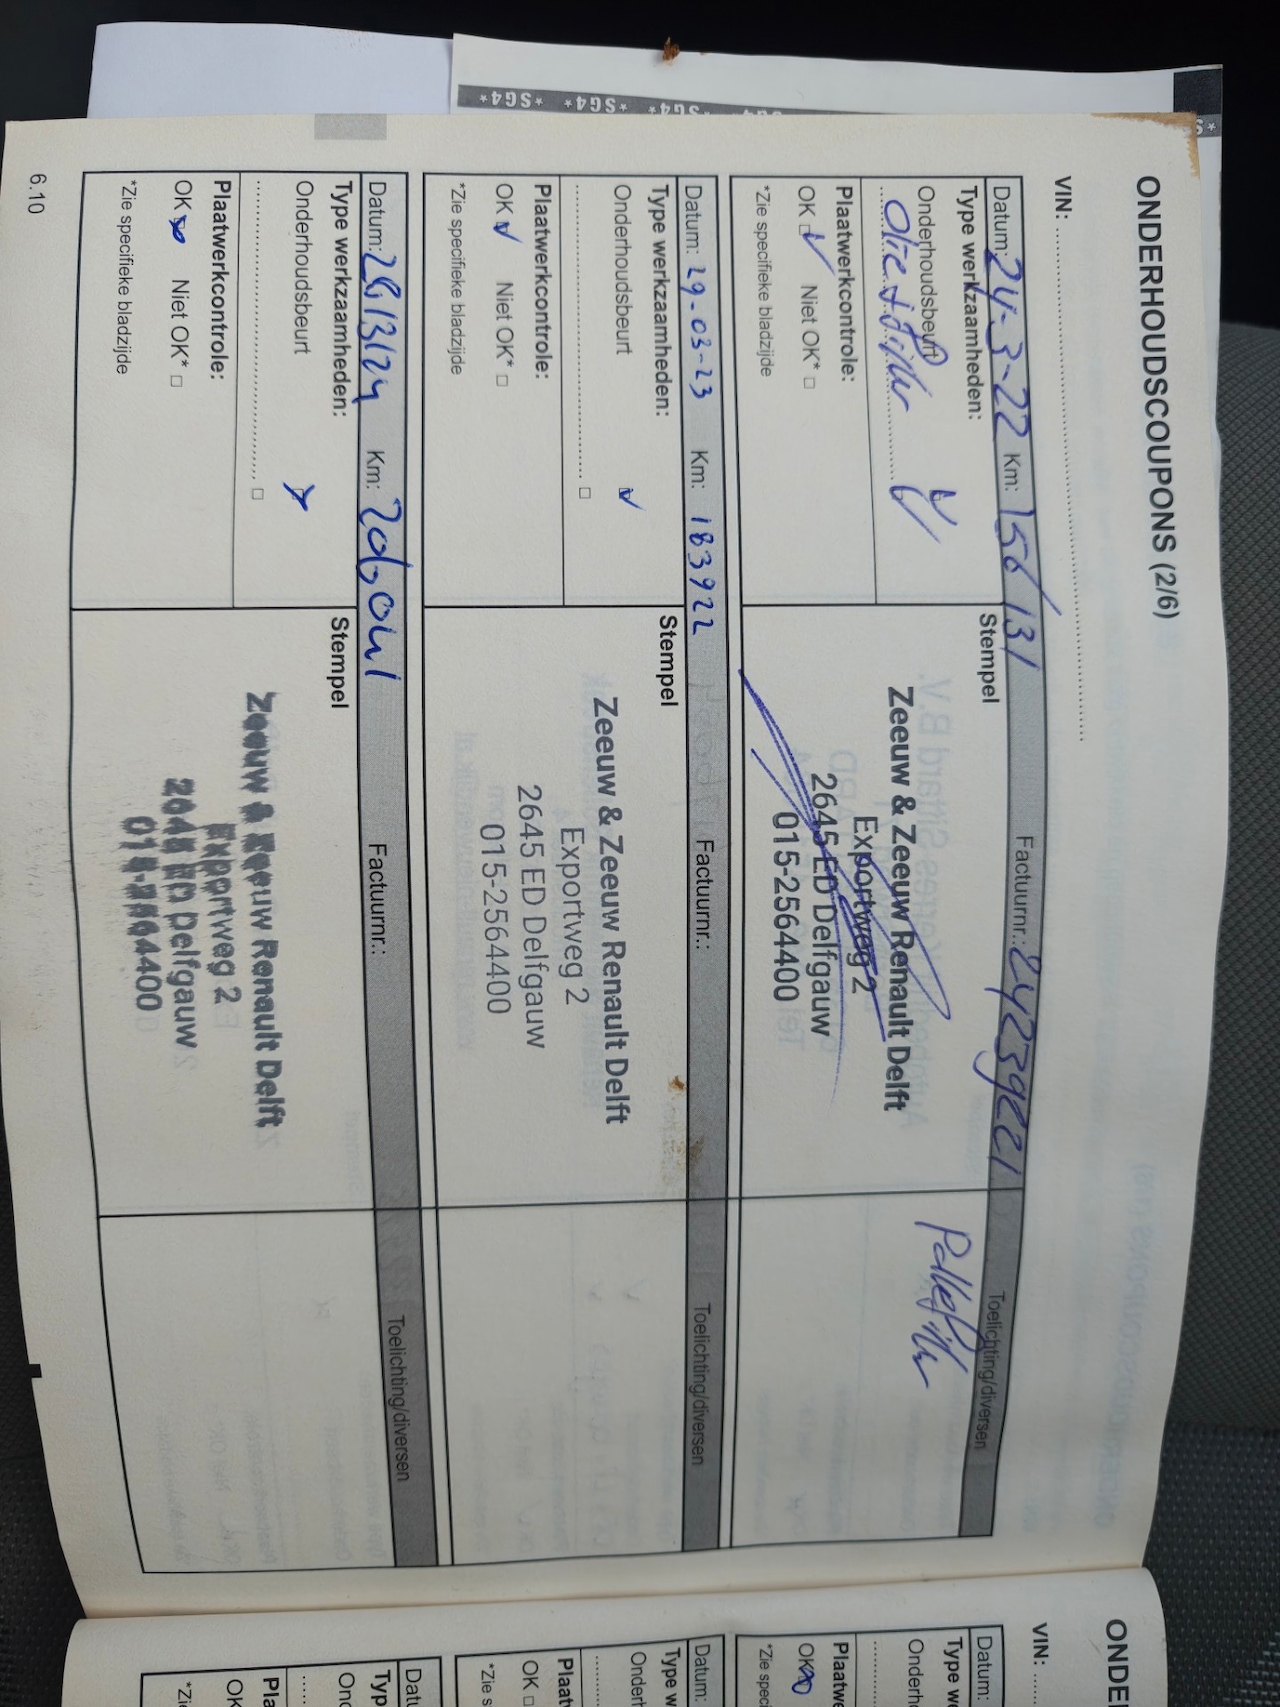 *SG4* *SG4* *SG4* *SG4
ONDERHOUDSCOUPONS (2/6)
VIN:
Datum: 24-3-22 Km: 156131 Factuurnr.: Toelichting/diversen
Type werkzaamheden:
Onderhoudsbeurt
Olie + filter
Plaatwerkcontrole:
OK Niet OK*
*Zie specifieke bladzijde
Stempel
Zeeuw & Zeeuw Renault Delft
Exportweg 2
2645 ED Delfgauw
015-2564400
Datum: 29-03-23 Km: 183922 Factuurnr.: Toelichting/diversen
Type werkzaamheden:
Onderhoudsbeurt
Plaatwerkcontrole:
OK Niet OK*
*Zie specifieke bladzijde
Stempel
Zeeuw & Zeeuw Renault Delft
Exportweg 2
2645 ED Delfgauw
015-2564400
Datum: 28/3/24 Km: Factuurnr.: Toelichting/diversen
Type werkzaamheden:
Onderhoudsbeurt
Plaatwerkcontrole:
OK Niet OK*
*Zie specifieke bladzijde
Stempel
Zeeuw & Zeeuw Renault Delft
Exportweg 2
2645 ED Delfgauw
015-2564400
6.10
ONDE
VIN:
Datum:
Type we
Onderh
Plaatwe
OK
*Zie speci
Datum:
Type w
Onder
Plaat
OK
*Zie s
Datu
Typ
Ond
Pla
OK
*Zi